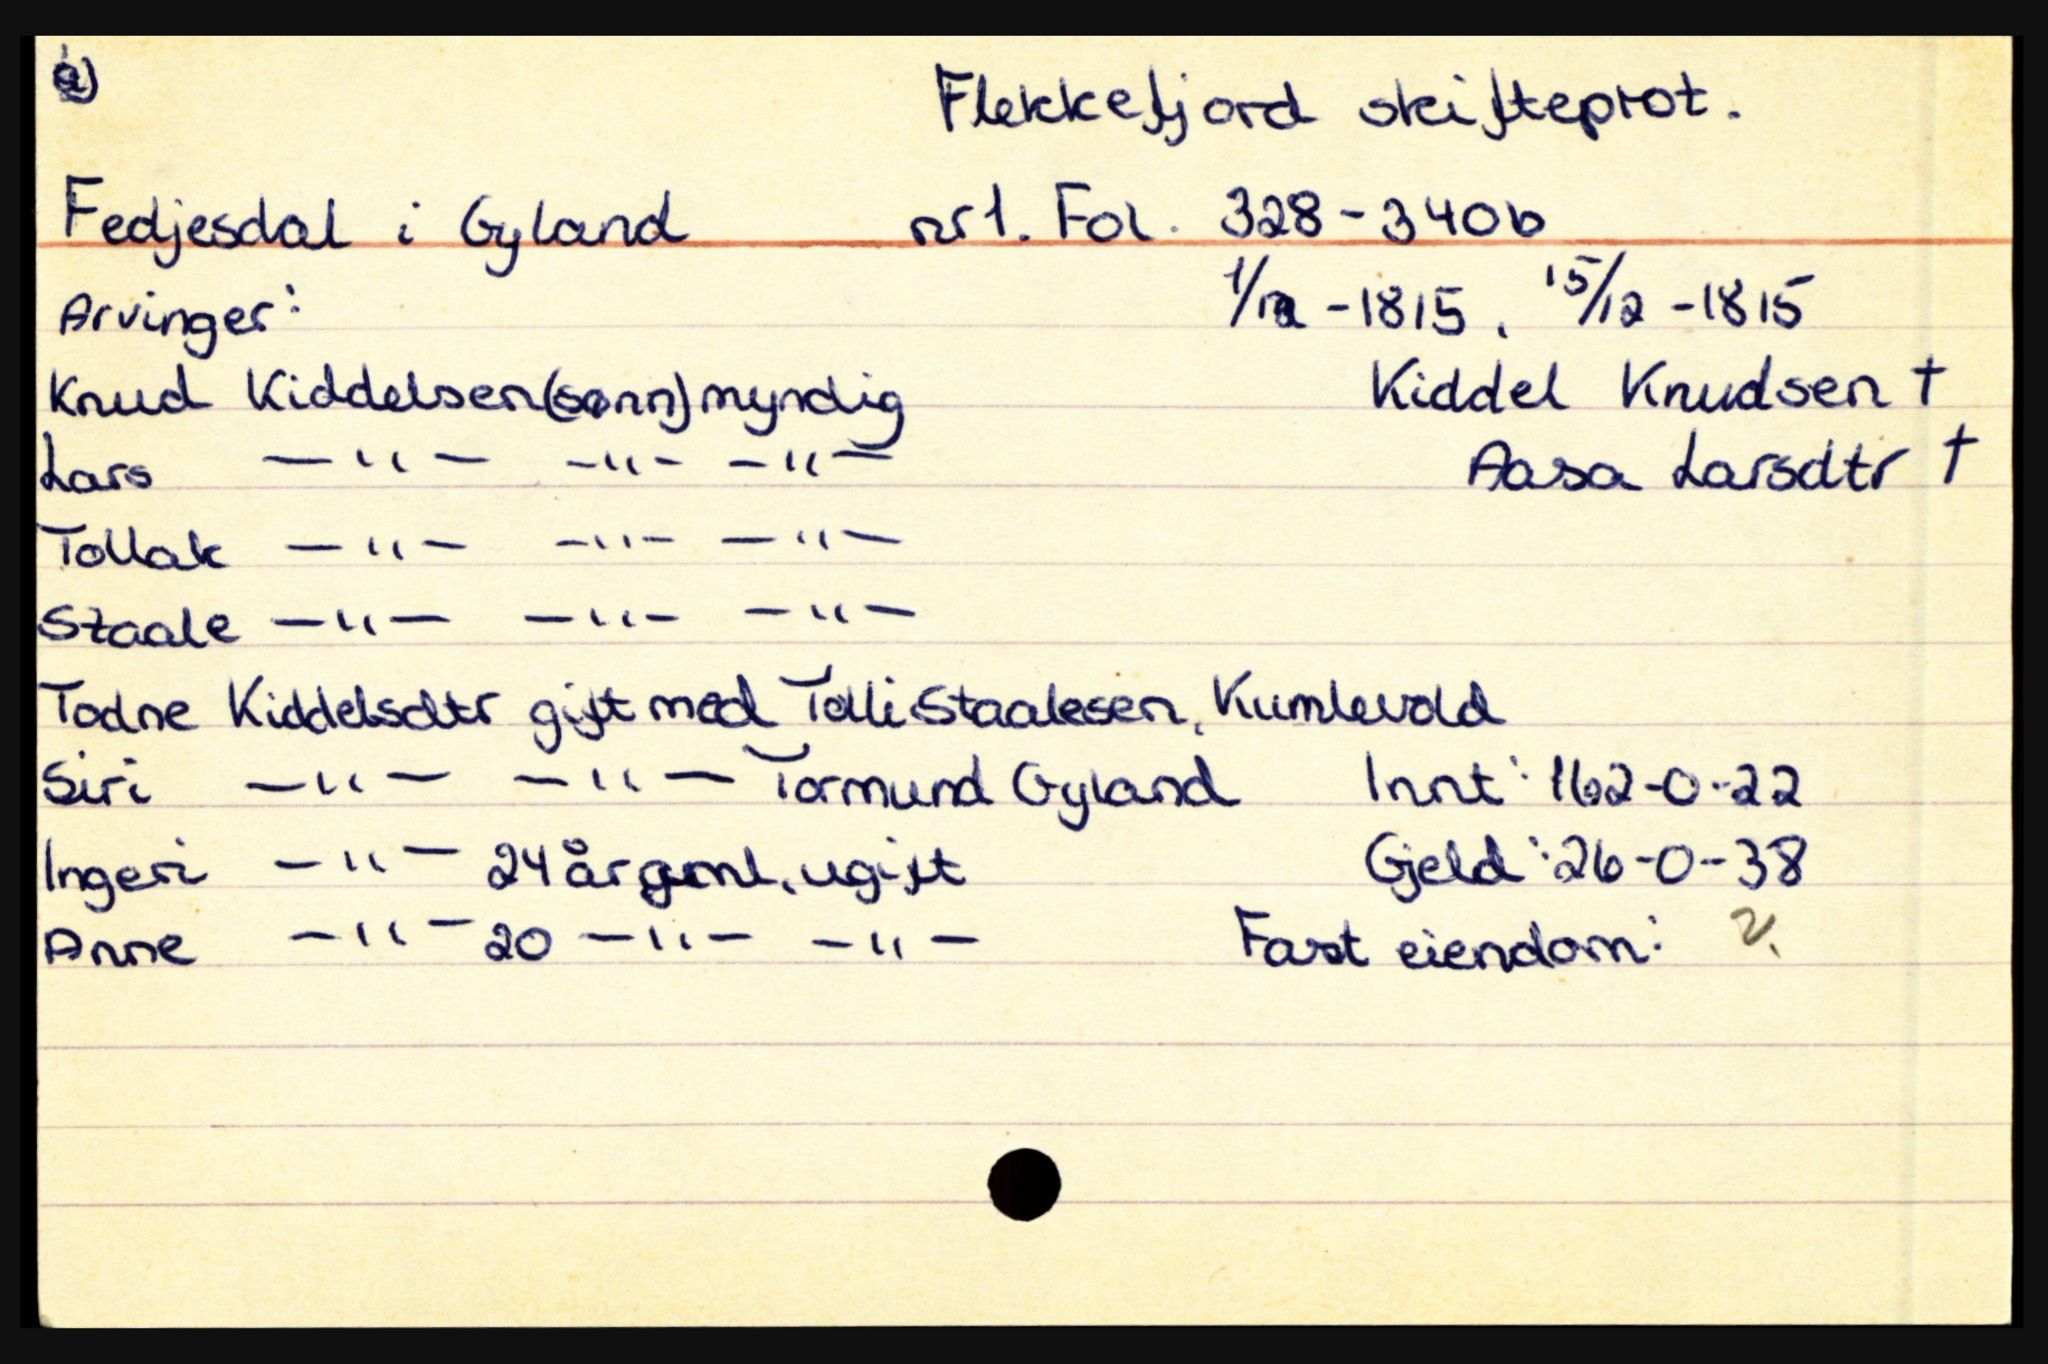 Flekkefjord skifteprot.
Fedjesdal i Gyland nr 1. Fol. 328-340b
Arvinger: 1/12-1815, 15/12-1815
Knud Kiddelsen (sønn) myndig Kiddel Knudsen †
Lars —"— —"— —"— Aasa Larsdtr †
Tollak —"— —"— —"—
Staale —"— —"— —"—
Todne Kiddelsdtr gift med Tolli Staalesen, Kumlevold
Siri —"— —"— Tormund Gyland Innt: 162-0-22
Ingeri —"— 24 år gml, ugift Gjeld: 26-0-38
Anne —"— 20 —"— —"— Fast eiendom: ?